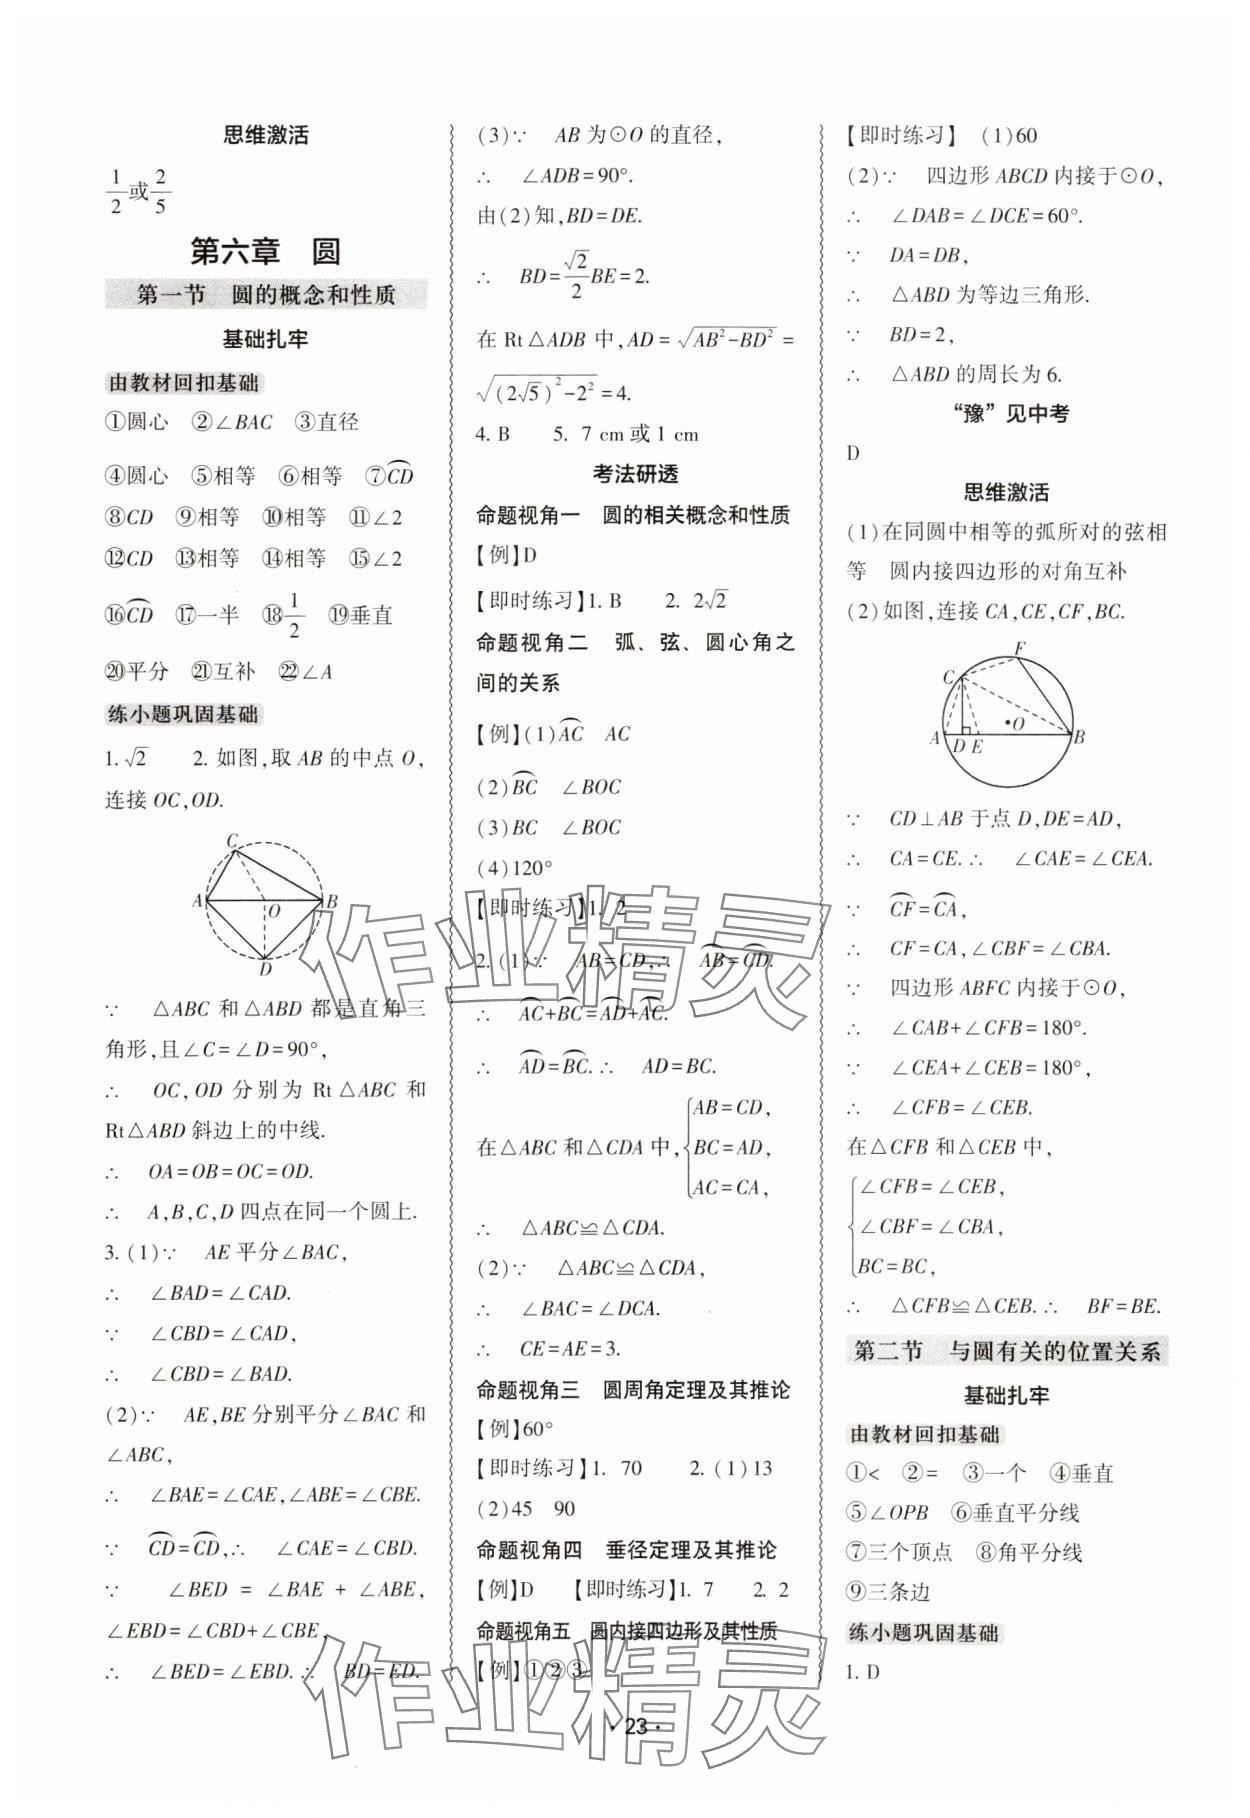 思维激活
1/2或2/5
第六章 圆
第一节 圆的概念和性质
基础扎牢
由教材回扣基础
①圆心 ②∠BAC ③直径
④圆心 ⑤相等 ⑥相等 ⑦C͡D
⑧CD ⑨相等 ⑩相等 ⑪∠2
⑫CD ⑬相等 ⑭相等 ⑮∠2
⑯C͡D ⑰一半 ⑱1/2 ⑲垂直
⑳平分 ㉑互补 ㉒∠A
练小题巩固基础
1.√2 2. 如图,取 AB 的中点 O,
连接 OC,OD.
C
A O B
D
∵ △ABC 和△ABD 都是直角三
角形,且∠C=∠D=90°,
∴ OC,OD 分别为 Rt△ABC 和
Rt△ABD 斜边上的中线.
∴ OA=OB=OC=OD.
∴ A,B,C,D 四点在同一个圆上.
3. (1)∵ AE 平分∠BAC,
∴ ∠BAD=∠CAD.
∵ ∠CBD=∠CAD,
∴ ∠CBD=∠BAD.
(2)∵ AE,BE 分别平分∠BAC 和
∠ABC,
∴ ∠BAE=∠CAE,∠ABE=∠CBE.
∵ C͡D=C͡D,∴ ∠CAE=∠CBD.
∵ ∠BED = ∠BAE + ∠ABE,
∠EBD=∠CBD+∠CBE,
∴ ∠BED=∠EBD.∴ BD=ED.
(3)∵ AB 为⊙O 的直径,
∴ ∠ADB=90°.
由(2)知,BD=DE.
∴ BD=√2/2BE=2.
在 Rt△ADB 中,AD=√(AB²-BD²)=
√((2√5)²-2²)=4.
4. B 5. 7 cm 或 1 cm
考法研透
命题视角一 圆的相关概念和性质
【例】D
【即时练习】1. B 2. 2√2
命题视角二 弧、弦、圆心角之
间的关系
【例】(1)A͡C AC
(2)B͡C ∠BOC
(3)BC ∠BOC
(4)120°
【即时练习】1. 2
2. (1)∵ AB=CD,∴ A͡B=C͡D.
∴ A͡C+B͡C=A͡D+A͡C.
∴ A͡D=B͡C.∴ AD=BC.
在△ABC 和△CDA 中,{AB=CD,
BC=AD,
AC=CA,
∴ △ABC≌△CDA.
(2)∵ △ABC≌△CDA,
∴ ∠BAC=∠DCA.
∴ CE=AE=3.
命题视角三 圆周角定理及其推论
【例】60°
【即时练习】1. 70 2. (1)13
(2)45 90
命题视角四 垂径定理及其推论
【例】D 【即时练习】1. 7 2. 2
命题视角五 圆内接四边形及其性质
【例】①②③
【即时练习】 (1)60
(2)∵ 四边形 ABCD 内接于⊙O,
∴ ∠DAB=∠DCE=60°.
∵ DA=DB,
∴ △ABD 为等边三角形.
∵ BD=2,
∴ △ABD 的周长为 6.
“豫”见中考
D
思维激活
(1)在同圆中相等的弧所对的弦相
等 圆内接四边形的对角互补
(2)如图,连接 CA,CE,CF,BC.
F
C
O
A D E B
∵ CD⊥AB 于点 D,DE=AD,
∴ CA=CE.∴ ∠CAE=∠CEA.
∵ C͡F=C͡A,
∴ CF=CA,∠CBF=∠CBA.
∵ 四边形 ABFC 内接于⊙O,
∴ ∠CAB+∠CFB=180°.
∵ ∠CEA+∠CEB=180°,
∴ ∠CFB=∠CEB.
在△CFB 和△CEB 中,
{∠CFB=∠CEB,
∠CBF=∠CBA,
BC=BC,
∴ △CFB≌△CEB.∴ BF=BE.
第二节 与圆有关的位置关系
基础扎牢
由教材回扣基础
①< ②= ③一个 ④垂直
⑤∠OPB ⑥垂直平分线
⑦三个顶点 ⑧角平分线
⑨三条边
练小题巩固基础
1. D
作业精灵
作业精灵
· 23 ·